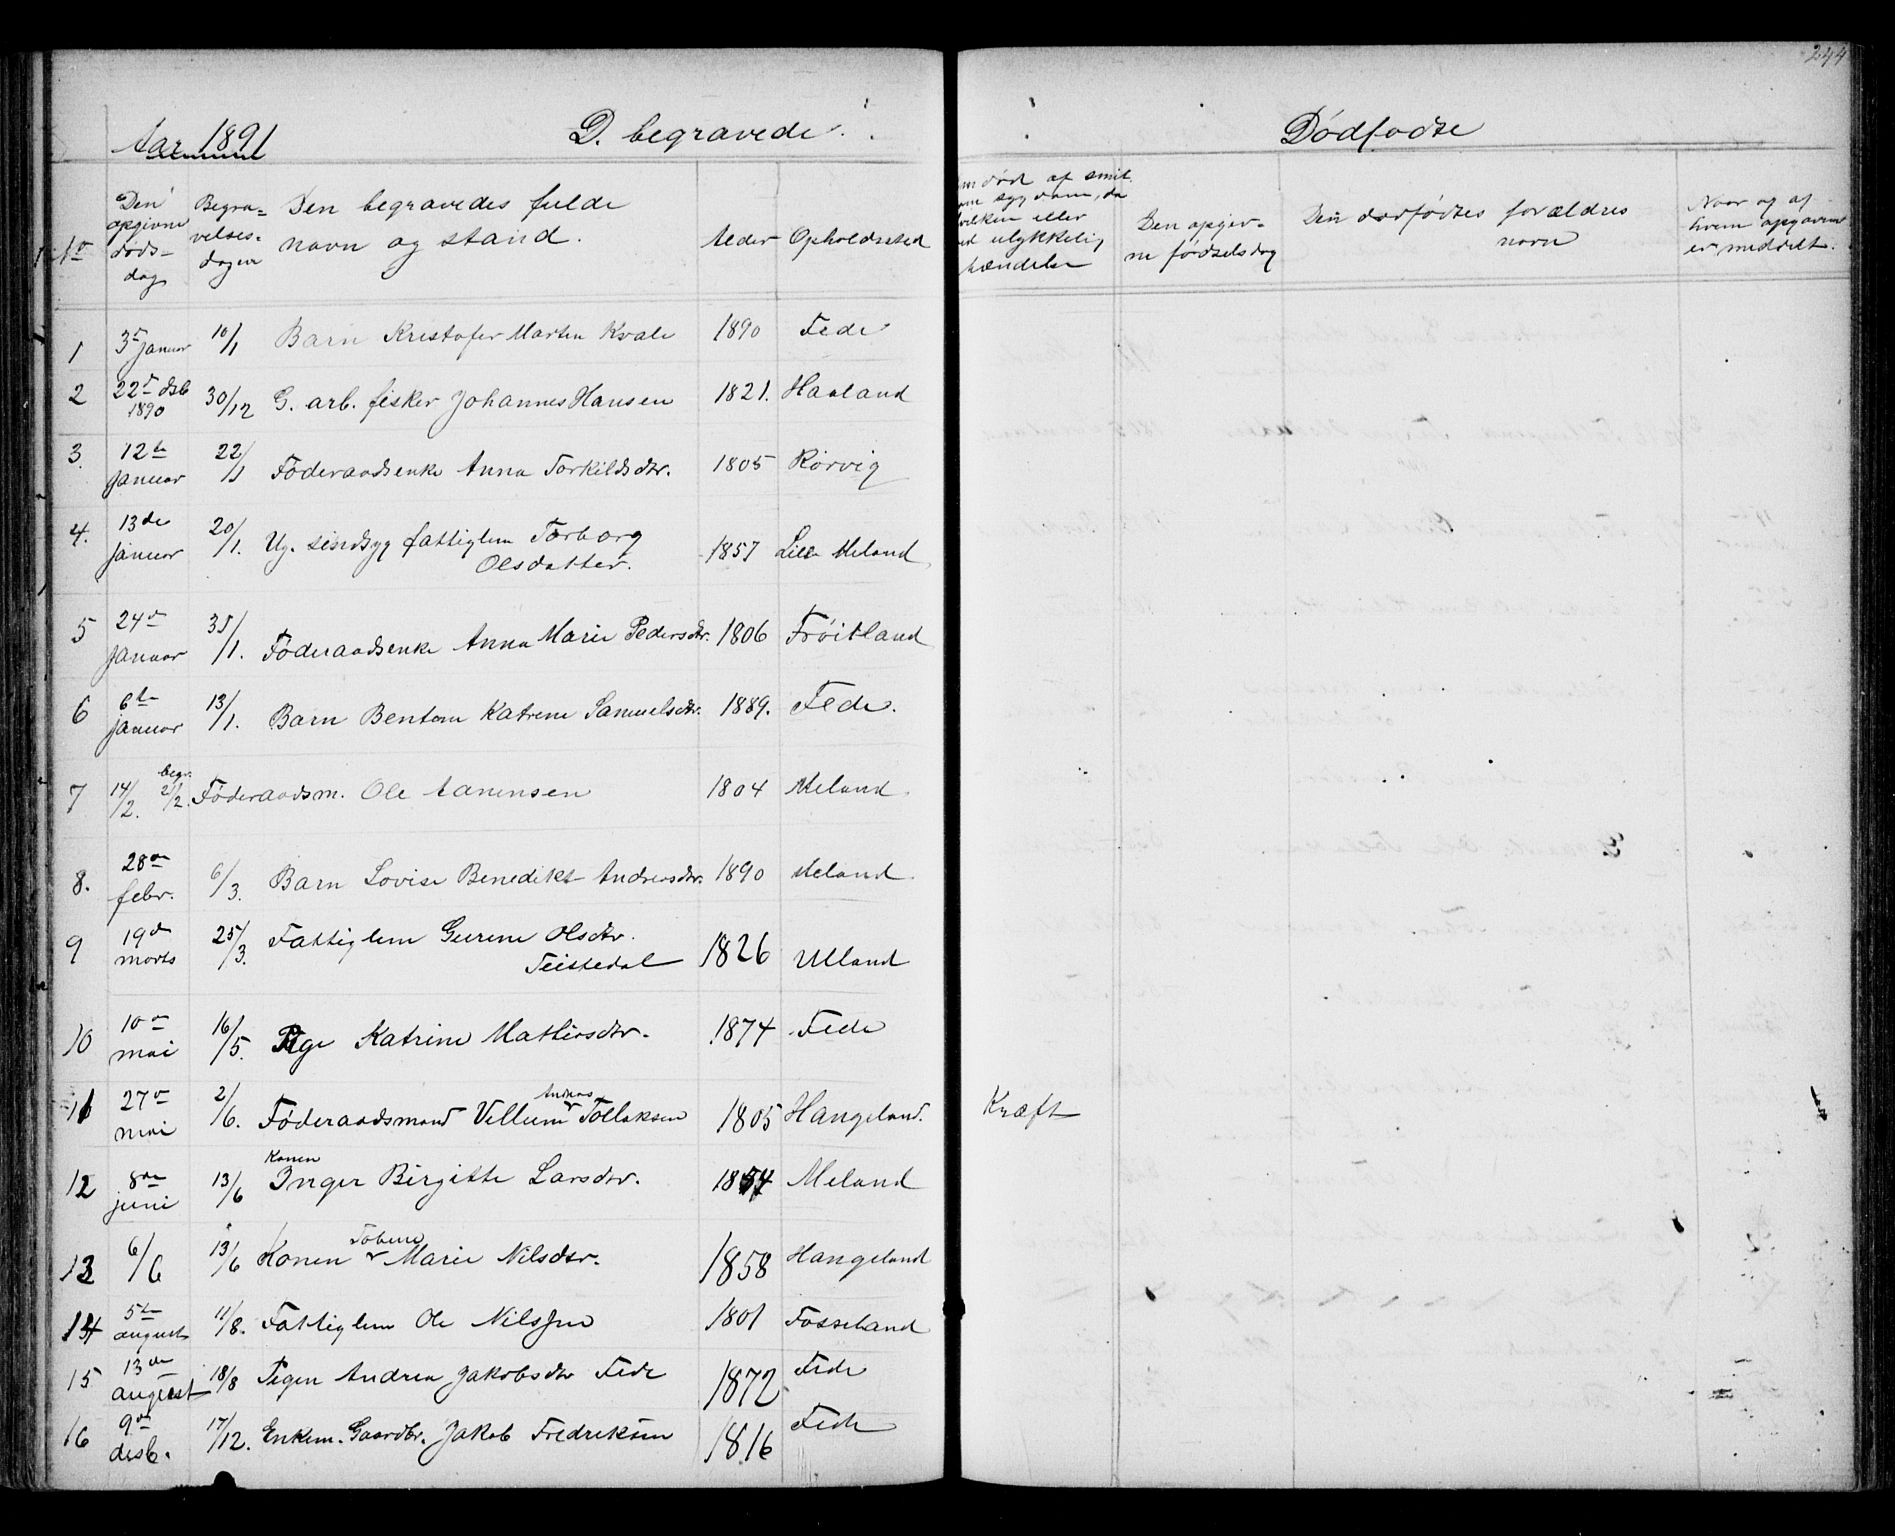 244
Aar 1891
D. begravede.
Dødfødte
No
Den opgivne døds-dag
Begra-velses-dagen
Den begravedes fulde navn og stand.
Alder
Opholdssted
død af smit.
sygdom, da
hvilken eller
ved ulykkelig
hændelse
Den opgiv-ne fødselsdag
Den dødfødtes forældres navn
Naar og af hvem opgaven er meddelt.
1 3de januar 10/1 Barn Kristofer Martin Kvale 1890 Fede
2 22de dsb 1890 30/12 G. arb. fisker Johannes Hansen 1821. Haaland
3. 12te januar 22/1 Føderaadsenke Anna Torkildsdtr. 1805 Rørvig
4. 13de januar 20/1. Ug. sindsyg fattiglem Torborg
Olsdatter. 1857 Lille Meland
5 24de januar 31/1. Føderaadsenke Anna Marie Pedersdtr. 1806 Frøitland
6 6te januar 13/1. Barn Katrine Samuelsdtr. 1889. Fede.
7 14/2. begr. 2/2. Føderaadsm. Ole Aanensen 1804 Meland
8. 28de febr. 6/3. Barn Lovise Benedikt Andreasdtr. 1890 Meland
9 19de marts 25/3. Fattiglem Gurine Olsdtr.
Teistedal 1826 Ulland
10 10de mai 16/5. Pige Katrine Mathiasdtr. 1874 Fede
11 27de mai 2/6. Føderaadsmand Villum Andreas Tollaksen 1805 Hangeland. Kræft
12 8de juni 13/6 Konen Inger Birgitte Larsdtr. 1854 Meland
13 6/6 13/6 Konen Tobine Marie Nilsdtr. 1858 Hangeland
14 5te august 11/8. Fattiglem Ole Nilssen 1801 Fosseland
15 13de august 18/8 Pigen Andrea Jakobsdtr Fede 1872 Fede
16 9de desb. 17/12. Enkem. Gaardbr. Jakob Fredriksen 1816 Fede